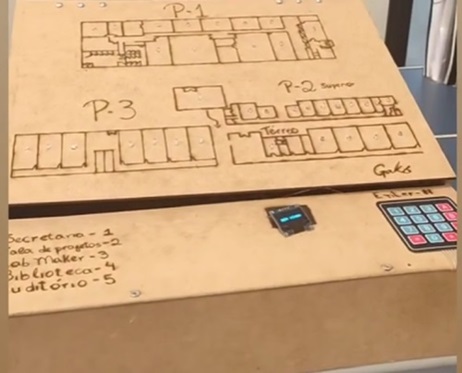 P-1
P-2 Superior
P-3
Térreo
Secretaria - 1
Sala de projetos - 2
Lab Maker - 3
Biblioteca - 4
Auditório - 5